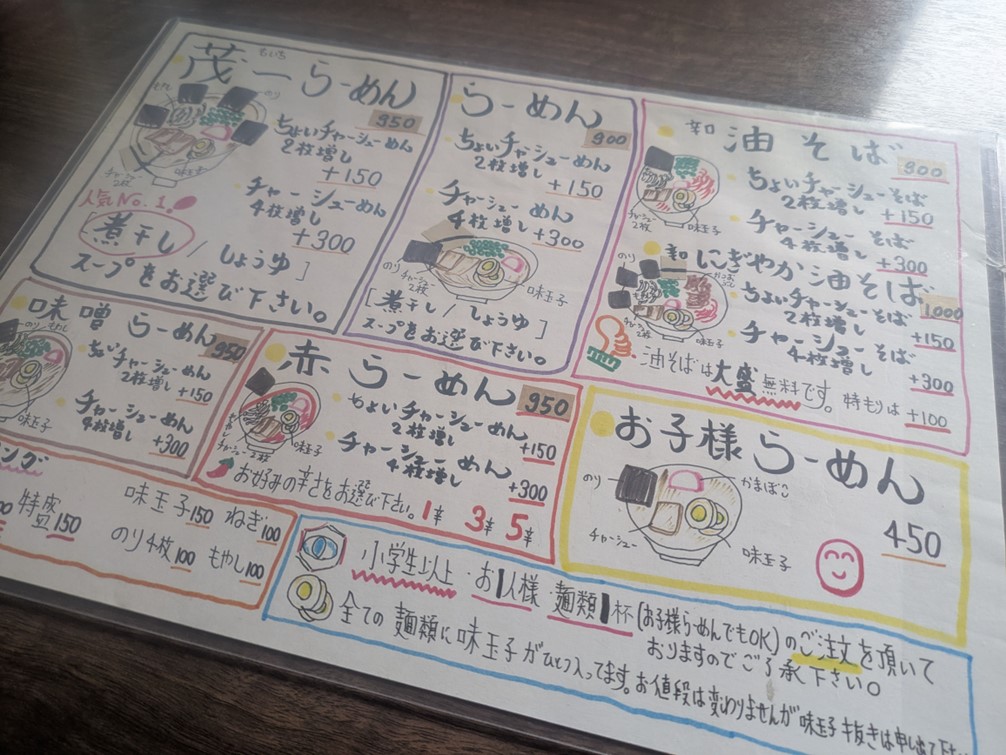 もいち
茂一らーめん 950
もやし
のり
チャーシュー2枚
味玉子
ちょいチャーシューめん
2枚増し
+150
チャーシューめん
4枚増し
+300
人気No.1
[煮干し/しょうゆ]
スープをお選び下さい。
らーめん 900
ちょいチャーシューめん
2枚増し +150
チャーシューめん
4枚増し +300
のり
チャーシュー2枚
味玉子
[煮干し/しょうゆ]
スープをお選び下さい。
油そば 900
チャーシュー2枚
味玉子
ちょいチャーシューそば
2枚増し +150
チャーシューそば
4枚増し +300
にぎやか油そば 1000
のり
チャーシュー2枚
味玉子
ちょいチャーシューそば
2枚増し +150
チャーシューそば
4枚増し +300
油そばは大盛無料です。特もりは+100
味噌らーめん 950
のり もやし
味玉子
ちょいチャーシューめん
2枚増し +150
チャーシューめん
4枚増し +300
赤らーめん 950
チャーシュー2枚
味玉子
ちょいチャーシューめん
2枚増し +150
チャーシューめん
4枚増し +300
お好みの辛さをお選び下さい。1辛 3辛 5辛
お子様らーめん
450
のり
かまぼこ
チャーシュー
味玉子
ング
150
味玉子150 ねぎ100
のり4枚100 もやし100
小学生以上 お1人様・麺類1杯(お子様らーめんでもOK)のご注文を頂いて
おりますのでご了承下さい。
全ての麺類に味玉子がひとつ入ってます。お値段は変わりませんが味玉子抜きは申し出て下さ